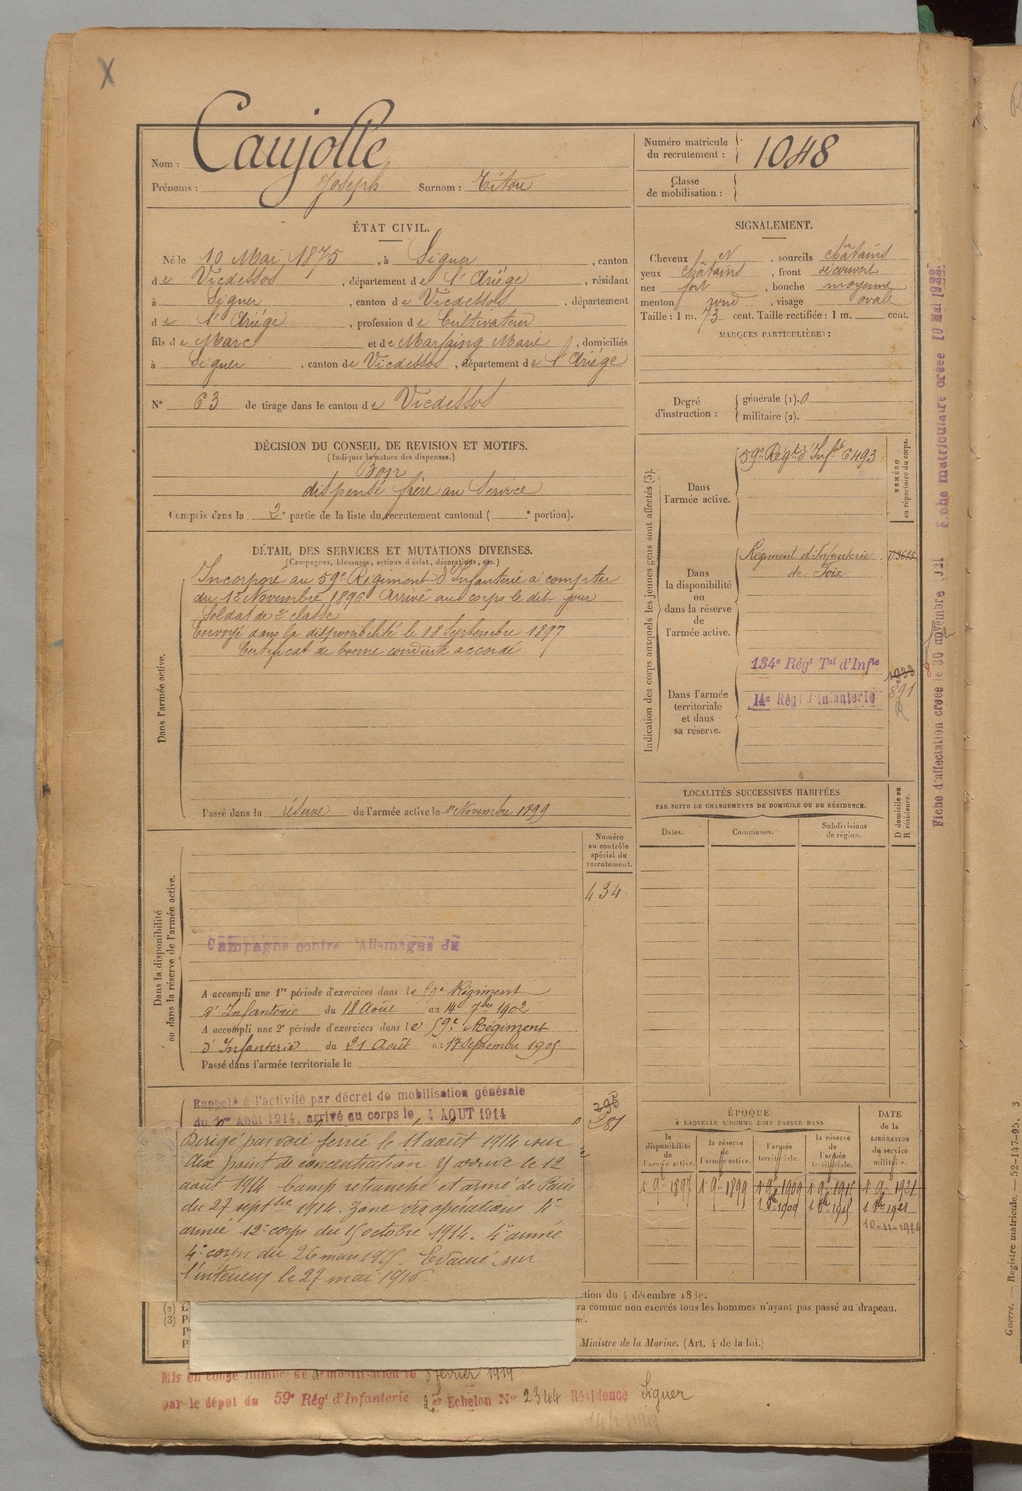 X
Nom : Caujolle
Prénoms : Joseph Surnom : Titou
Numéro matricule du recrutement : 1048
Classe de mobilisation :
ÉTAT CIVIL.
Né le 10 Mai 1875, à Siguer, canton
de Vicdessos, département de l'Ariége, résidant
à Siguer, canton de Vicdessos, département
de l'Ariége, profession de Cultivateur
fils de Marc et de Marfaing Marie, domiciliés
à Siguer, canton de Vicdessos, département de l'Ariége
N° 63 de tirage dans le canton de Vicdessos
SIGNALEMENT.
Cheveux et, sourcils châtains
yeux châtains, front découvert
nez fort, bouche moyenne
menton rond, visage ovale
Taille : 1 m. 73 cent. Taille rectifiée : 1 m. cent.
MARQUES PARTICULIÈRES :
Degré d'instruction : générale (1). 0
militaire (2).
DÉCISION DU CONSEIL DE REVISION ET MOTIFS.
(Indiquer la nature des dispenses.)
Bon
dispensé frère au service
Compris dans la 2e partie de la liste du recrutement cantonal ( e portion).
DÉTAIL DES SERVICES ET MUTATIONS DIVERSES.
(Campagnes, blessures, actions d'éclat, décorations, etc.)
Dans l'armée active.
Incorporé au 59e Régiment d'Infanterie à compter
du Novembre 1896 Arrivé au corps le dit jour
Soldat de 2e classe
Envoyé dans la disponibilité le 18 Septembre 1897
Certificat de bonne conduite accordé
Passé dans la réserve de l'armée active le 1er Novembre 1899
Indication des corps auxquels les jeunes gens sont affectés (3).
NUMÉRO au répertoire du corps.
Dans l'armée active.
59e Régt d'Infie 6493
Dans la disponibilité ou dans la réserve de l'armée active.
Régiment d'Infanterie
de Foix
Dans l'armée territoriale et dans sa réserve.
134e Régt Tal d'Infie
14e Régt d'Infanterie
891
LOCALITÉS SUCCESSIVES HABITÉES
PAR SUITE DE CHANGEMENTS DE DOMICILE OU DE RÉSIDENCE.
Dates.
Communes.
Subdivisions de région.
D domicile ou R résidence.
Numéro au contrôle spécial du recrutement.
434
Dans la disponibilité ou dans la réserve de l'armée active.
Campagne contre l'Allemagne du
A accompli une 1re période d'exercices dans le 59e Régiment
d'Infanterie du 18 Août au 14 7bre 1902
A accompli une 2e période d'exercices dans le 59e Régiment
d'Infanterie du 21 Août au 17 Septembre 1905
Passé dans l'armée territoriale le
Rappelé à l'activité par décret de mobilisation générale
du 1er Août 1914, arrivé au corps le 4 AOUT 1914
Dirigé par voie ferrée le 11 août 1914 sur
point de concentration y arrivé le 12
août 1914 Camp retranché et armé de Paris
du 27 septbre 1914. Zone des opérations 4e
armée 12e corps du 15 octobre 1914. 4e armée
4e corps du 26 mars 1915 Evacué sur
l'intérieur le 27 mai 1916
ÉPOQUE
À LAQUELLE L'HOMME DOIT PASSER DANS
la disponibilité de l'armée active.
la réserve de l'armée active.
l'armée territoriale.
la réserve de l'armée territoriale.
DATE de la LIBÉRATION du service militaire.
1 9bre 1897 1 9bre 1899 1 9bre 1909 1 9bre 1915 1 9bre 1921
1 8bre 1909 1 8bre 1915 1 8bre 1921
(2)
(3)
ction du 4 décembre 1889.
ra comme non exercés tous les hommes n'ayant pas passé au drapeau.
Ministre de la Marine. (Art. 4 de la loi.)
Mis en congé illimité de démobilisation le 3 février 1919
par le dépôt du 59e Régt d'Infanterie Echelon N° 2344 Résidence Siguer
Fiche d'affectation créée le 30 novembre 1921 Fiche matriculaire créée 10 Mai 1922
Guerre. — Registre matricule. — 52-147-95. 3